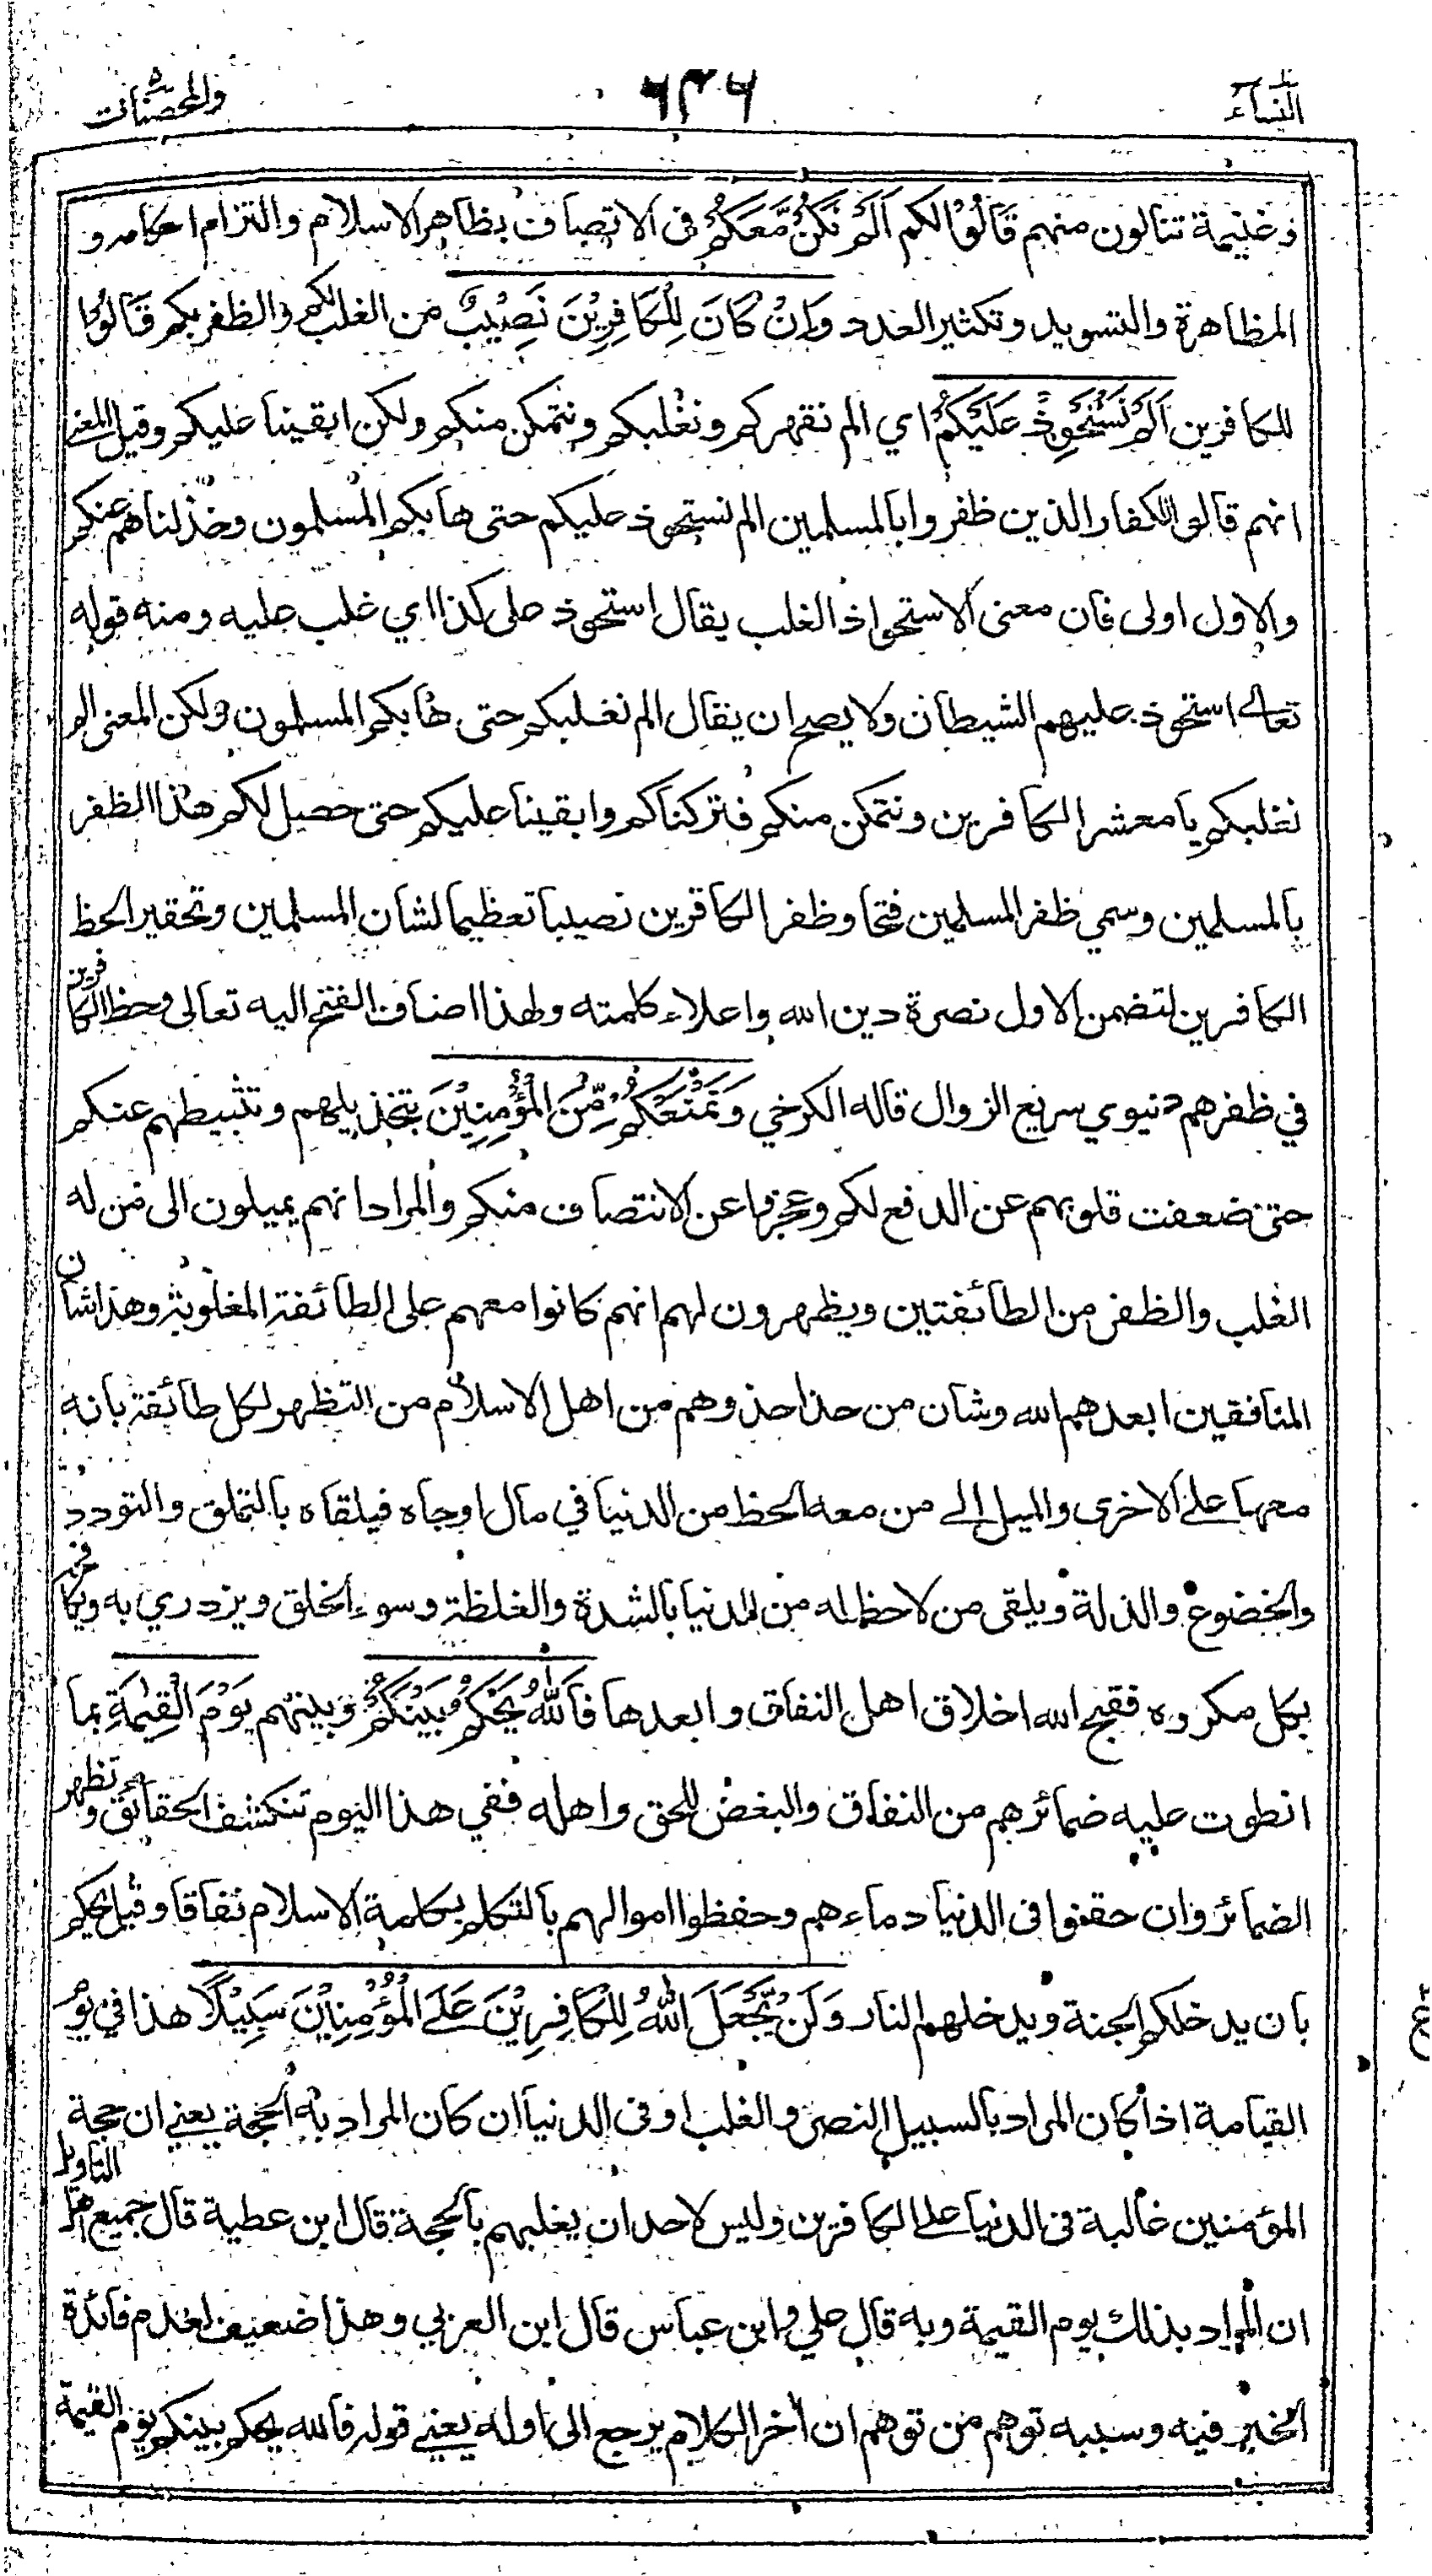 النساء
٦٣٦
والمحصنات
وغنيمة تنالون منهم قَالُوْا لكم اَلَمْ نَكُنْ مَّعَكُمْ فى الاتصاف بظاهر الاسلام والتزام احكامه و
المظاهرة والتسويد وتكثير العدد وَاِنْ كَانَ لِلْكَافِرِيْنَ نَصِيْبٌ من الغلب لكم والظفر بكم قَالُوْا
للكافرين اَلَمْ نَسْتَحْوِذْ عَلَيْكُمْ اي الم نقهركم ونغلبكم ونتمكن منكم ولكن ابقينا عليكم وقيل المعنے
انهم قالوا للكفار الذين ظفروا بالمسلمين الم نستحوذ عليكم حتى هابكم المسلمون وخذلناهم عنكم
والاول اولى فان معنى الاستحواذ الغلب يقال استحوذ على كذا اي غلب عليه ومنه قوله
تعالے استحوذ عليهم الشيطان ولا يصح ان يقال الم نغلبكم حتى هابكم المسلمون ولكن المعنى الم
نغلبكم يا معشر الكافرين ونتمكن منكم فتركناكم وابقينا عليكم حتى حصل لكم هذا الظفر
بالمسلمين وسمي ظفر المسلمين فتحا وظفر الكافرين نصيبا تعظيما لشان المسلمين وتحقيرا لحظ
الكافرين لتضمن الاول نصرة دين الله واعلاء كلمته ولهذا اضاف الفتح اليه تعالى وحظ الكافرين
في ظفرهم دنيوي سريع الزوال قاله الكرخي وَنَمْنَعْكُمْ مِّنَ الْمُؤْمِنِيْنَ بتخذيلهم وتثبيطهم عنكم
حتى ضعفت قلوبهم عن الدفع لكم وعجزوا عن الانتصاف منكم والمراد انهم يميلون الى من له
الغلب والظفر من الطائفتين ويظهرون لهم انهم كانوا معهم على الطائفة المغلوبة وهذا شان
المنافقين ابعدهم الله وشان من حذا حذوهم من اهل الاسلام من التظهر لكل طائفة بانه
معها علے الاخرى والميل الے من معه الحظ من الدنيا في مال او جاه فيلقاه بالتملق والتودد
والخضوع والذلة ويلقى من لا حظ له من الدنيا بالشدة والغلظة وسوء الخلق ويزدري به ويكافحه
بكل مكروه فقبح الله اخلاق اهل النفاق وابعدها فَاللّٰهُ يَحْكُمُ بَيْنَكُمْ وبينهم يَوْمَ الْقِيٰمَةِ بما
انطوت عليه ضمائرهم من النفاق والبغض للحق واهله ففي هذا اليوم تنكشف الحقائق وتظهر
الضمائر وان حقنوا فى الدنيا دماءهم وحفظوا اموالهم بالتكلم بكلمة الاسلام نفاقا وقيل يحكم
بان يدخلكم الجنة ويدخلهم النار وَلَنْ يَّجْعَلَ اللّٰهُ لِلْكَافِرِيْنَ عَلَى الْمُؤْمِنِيْنَ سَبِيْلًا هذا في يوم
القيامة اذا كان المراد بالسبيل النصر والغلب او فى الدنيا ان كان المراد به الحجة يعنے ان حجة
المؤمنين غالبة فى الدنيا علے الكافرين وليس لاحد ان يغلبهم بالحجة قال ابن عطية قال جميع اهل التاويل
ان المراد بذلك يوم القيمة وبه قال علي وابن عباس قال ابن العربي وهذا ضعيف لعدم فائدة
الخبر فيه وسببه توهم من توهم ان اخر الكلام يرجع الى اوله يعنے قوله فالله يحكم بينكم يوم القيمة